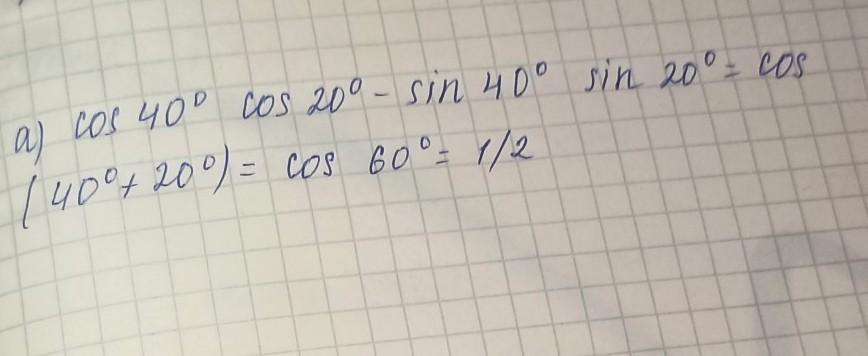 a) cos 40° cos 20° - sin 40° sin 20° = cos
(40° + 20°) = cos 60° = 1/2